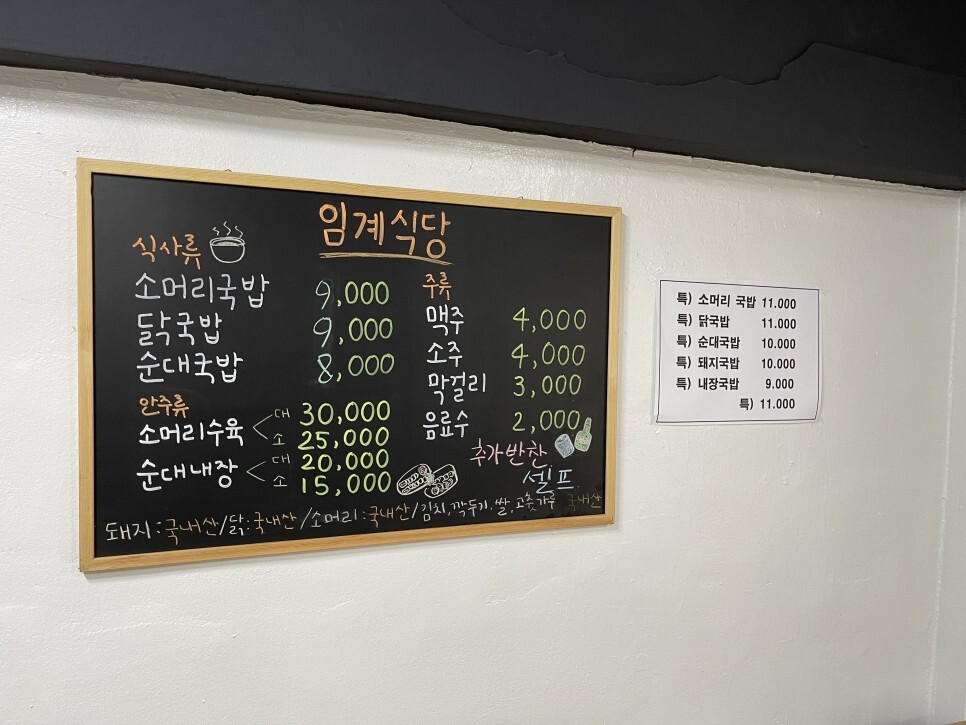 임계식당
식사류
소머리국밥 9,000
닭국밥 9,000
순대국밥 8,000
안주류
소머리수육 대 30,000
소 25,000
순대내장 대 20,000
소 15,000
주류
맥주 4,000
소주 4,000
막걸리 3,000
음료수 2,000
추가반찬
셀프
돼지:국내산/닭:국내산/소머리:국내산/김치,깍두기,쌀,고춧가루 국내산
특) 소머리 국밥 11.000
특) 닭국밥 11.000
특) 순대국밥 10.000
특) 돼지국밥 10.000
특) 내장국밥 9.000
특) 11.000